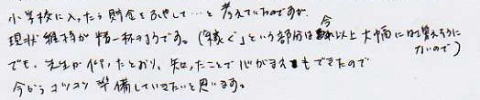 小学校に入ったら貯金を増やして…と考えていたのですが、
現状維持が精一杯のようです。(“稼ぐ”という部分は今以上大幅には増えそうにないので)
でも、先生が仰ったとおり、知ったことで心がまえもできたので
今からコツコツ準備していきたいと思います。